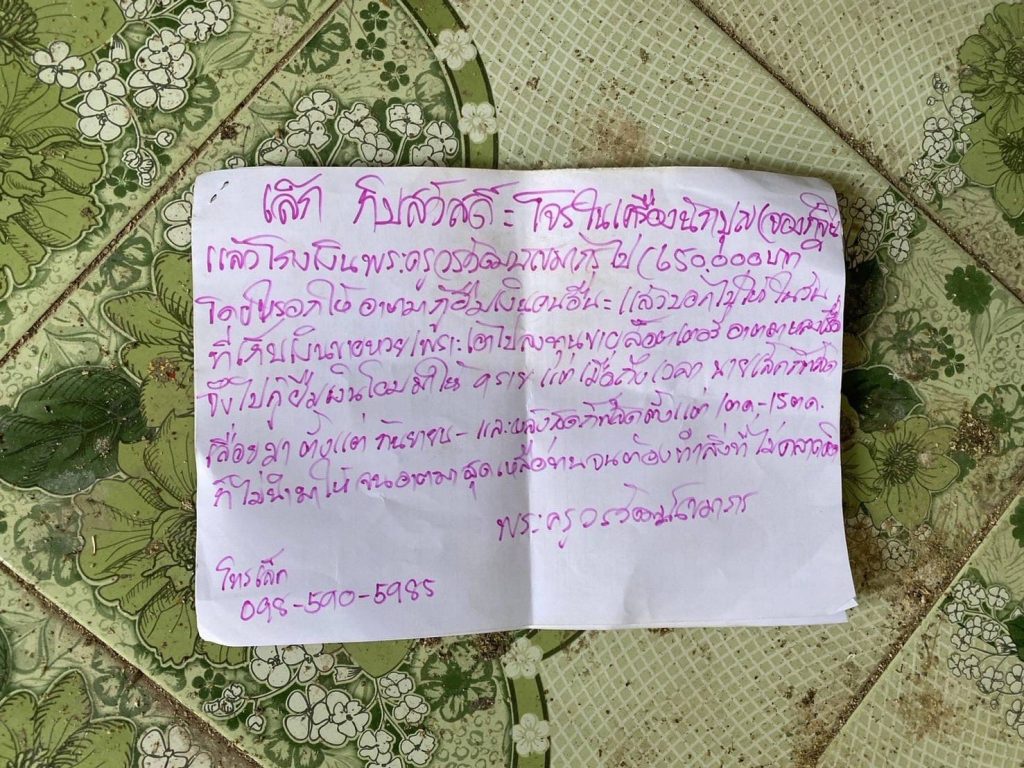 เล็ก ทิปสวัสดิ์ = โจรในเครื่องนักบุญ
แล้วโกงเงินพระครู ไป (650.000บาท
ให้ อาตมากู้ยืมเงินคนอื่น = แล้วบอกไม่ให้ในวัน
ที่เก็บเงินขายหวย เพราะเอาไปลงทุนขาย อาตมา
จึงไปกู้ยืมเงินโอนมาให้ แต่เมื่อถึงเวลา นายเล็กก็ผลัด
เลื่อยมา ตั้งแต่ กันยายน - และหลังสุดก็ผลัดตั้งแต่ 1ตค.-15ตค.
ก็ไม่นำมาให้ จนอาตมาสุดเหลือทน จนต้องทำสิ่งที่ไม่คาดคิด
พระครู
โทรเล็ก
098-590-5985